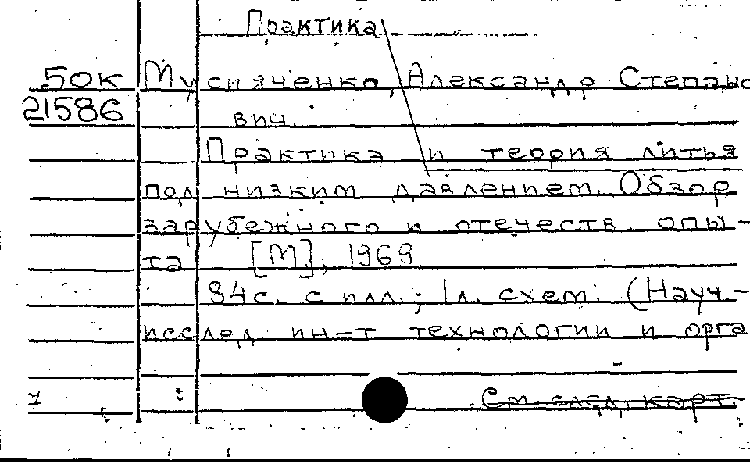 Практика
50к Мусияченко, Александр Степано
21586 вич.
Практика и теория литья
под низким давлением. Обзор
зарубежного и отечеств. опы-
та [М], 1969
84с. с илл.; 1л. схем. (Науч.-
исслед. ин-т технологии и орга
См. след. карт.